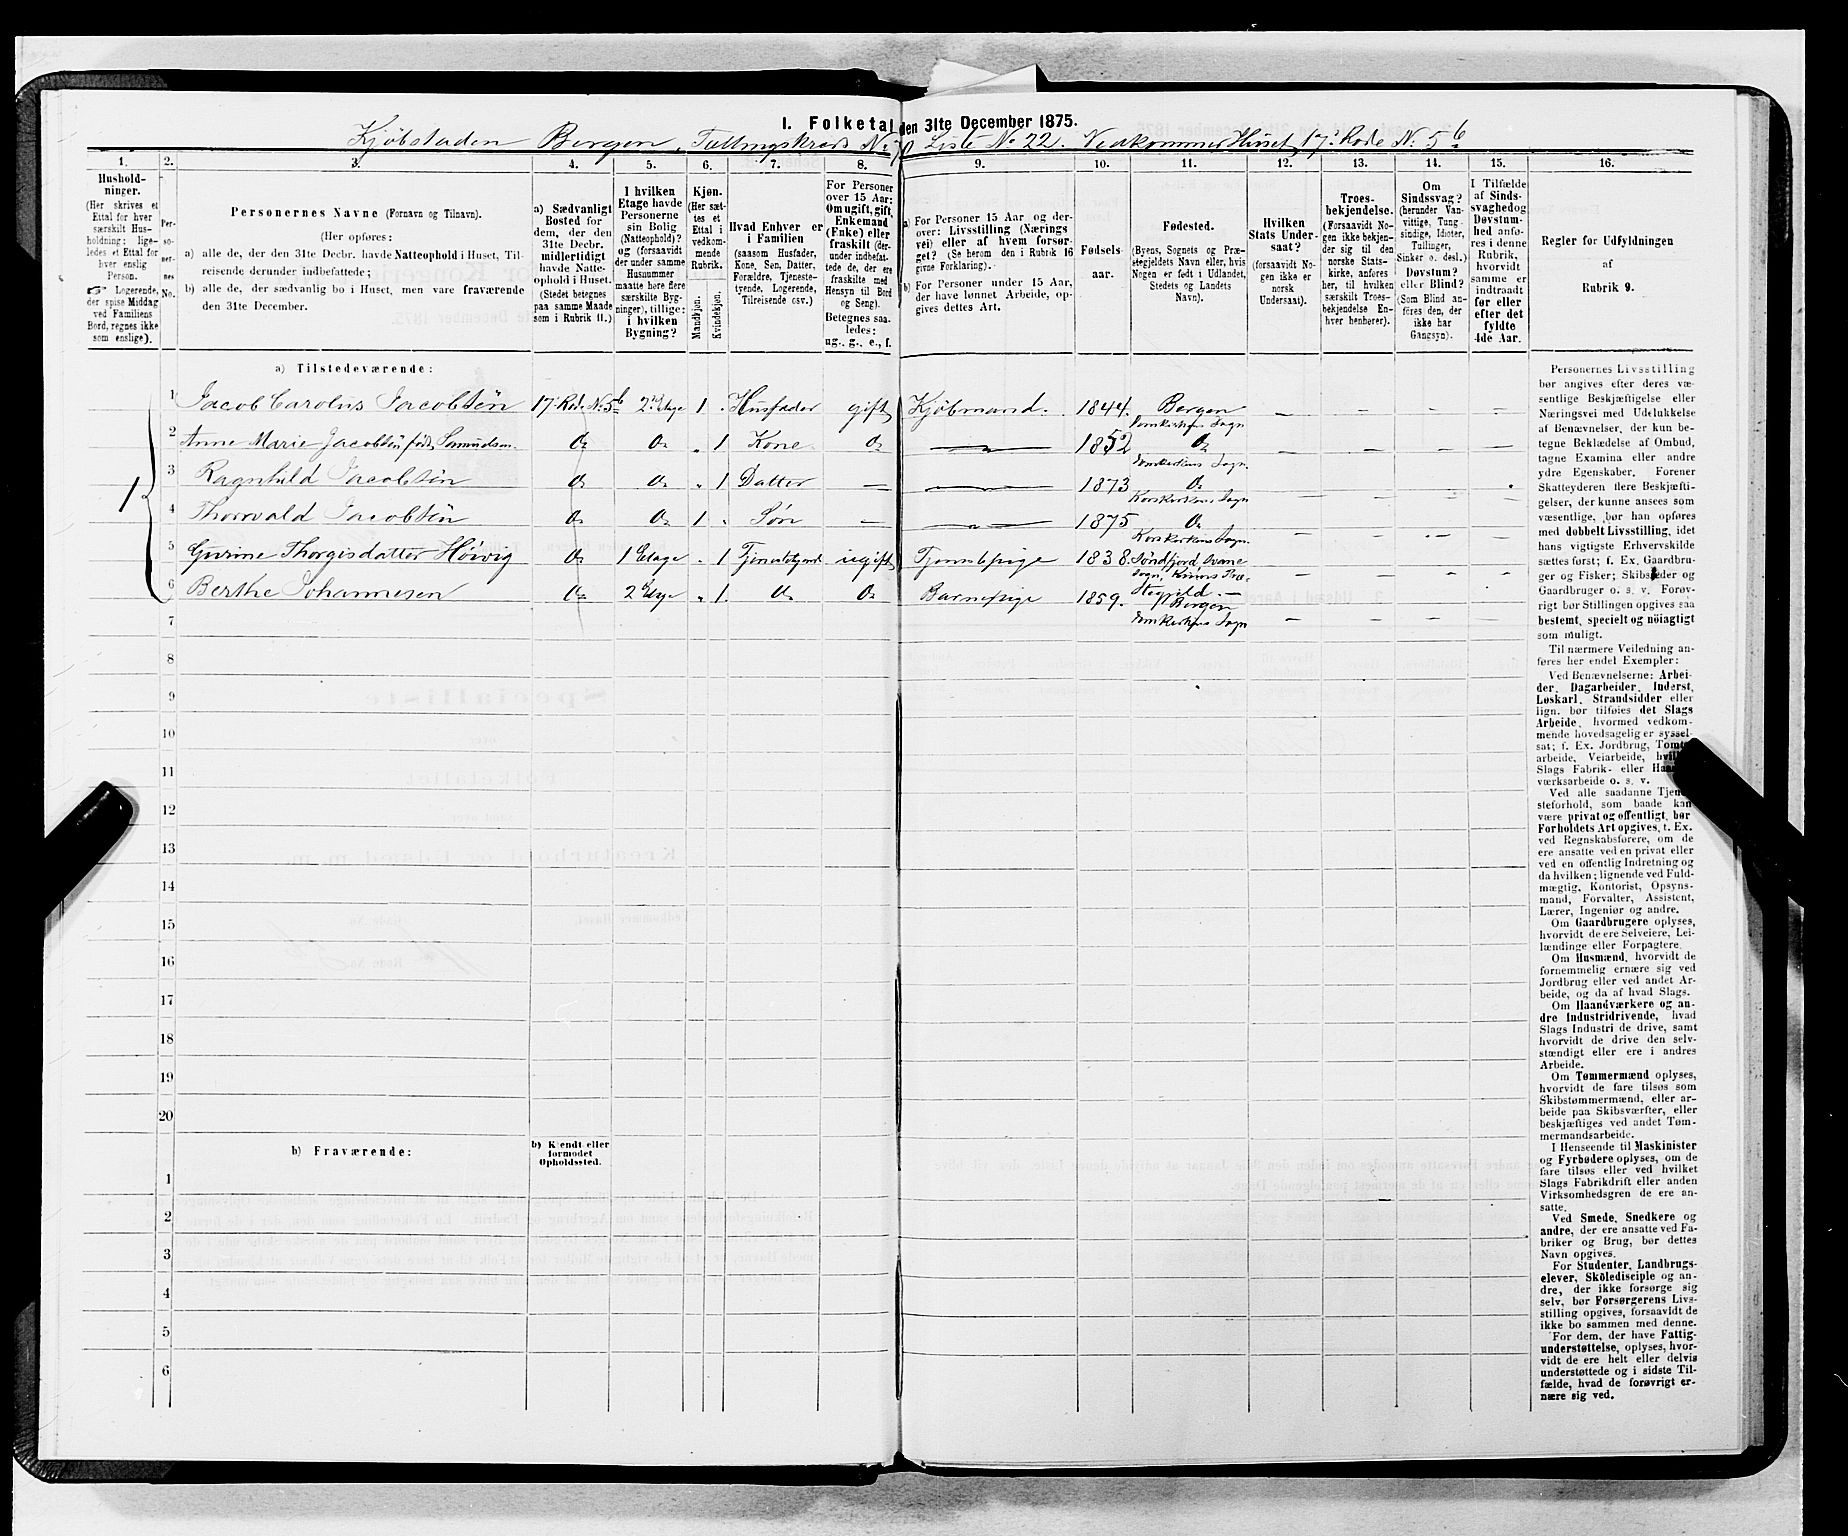 I. Folketal den 31te December 1875.
Kjöbstaden Bergen, Tællingskreds No 70 Liste No 22. Vedkommer Huset 17de Rode No. 5b
1. 2. 3. 4. 5. 6. 7. 8. 9. 10. 11. 12. 13. 14. 15. 16.
Hushold-
ninger.
(Her skrives et
Ettal for hver
særskilt Hus-
holdning: lige-
ledes et Ettal for
hver enslig
Person.
☞ Logerende,
der spise Middag
ved Familiens
Bord, regnes ikke
som enslige).
Per-
so-
ner-
nes
No.
Personernes Navne (Fornavn og Tilnavn).
(Her opføres:
a) alle de, der den 31te Decbr. havde Natteophold i Huset, Til-
reisende derunder indbefattede;
b) alle de, der sædvanlig bo i Huset, men vare fraværende
den 31te December.
a) Sædvanligt
Bosted for
dem, der den
31te Decbr.
midlertidigt
havde Natte-
ophold i Huset.
(Stedet betegnes
paa samme Maade
som i Rubrik 11.)
I hvilken
Etage havde
Personerne
sin Bolig
(Natteophold)?
og (forsaavidt
der under samme
Husnummer
maatte høre flere
særskilte Byg-
ninger), tillige:
i hvilken
Bygning?
Kjøn.
(Her sæt-
tes et
Ettal i
vedkom-
mende
Rubrik.
Mandkjøn.
Kvindekjøn.
Hvad Enhver er
i Familien
(saasom Husfader,
Kone, Søn, Datter,
Forældre, Tjeneste-
tyende, Logerende,
Tilreisende osv.)
For Personer
over 15 Aar:
Om ugift, gift,
Enkemand
(Enke) eller
fraskilt (der-
under indbefat-
tede de, der ere
fraskilte med
Hensyn til Bord
og Seng).
Betegnes saa-
ledes:
ug., g., e., f.
a) For Personer 15 Aar og der-
over: Livsstilling (Nærings
vei) eller af hvem forsør-
get? (Se herom den i Rubrik 16
givne Forklaring).
b) For Personer under 15 Aar,
der have lønnet Arbeide, op-
gives dettes Art.
Fødsels-
aar.
Fødested.
(Byens, Sognets og Præ-
stegjeldets Navn eller, hvis
Nogen er født i Udlandet,
Stedets og Landets
Navn).
Hvilken
Stats Under-
saat?
(forsaavidt No-
gen ikke er
norsk
Undersaat).
Troes-
bekjendelse.
(Forsaavidt No-
gen ikke bekjen-
der sig til den
norske Stats-
kirke, anføres
her, til hvilken
særskilt Troes-
bekjendelse En-
hver henhører).
Om
Sindssvag?
(herunder Van-
vittige, Tung-
sindige, Idioter,
Tullinger,
Sinker o. desl.)
Døvstum?
eller Blind?
(Som Blind an-
føres den, der
ikke har
Gangsyn).
I Tilfælde
af Sinds-
svaghed og
Døvstum-
hed anfø-
res i denne
Rubrik,
hvorvidt
samme er
indtraadt
før eller
efter det
fyldte
4de Aar.
Regler for Udfyldningen
af
Rubrik 9.
a) Tilstedeværende:
1 Jacob Carolus Jacobsen 17. Rode No. 5b 2den Etage 1 . Husfader gift Kjöbmand. 1844. Bergen Domkirkens Sogn — — — —
2 Anne Marie Jacobsen född Samuelsen Do Do „ 1 Kone Do — 1852 Do Domkirkens Sogn. — — — —
3 Ragnhild Jacobsen Do Do „ 1 Datter — — 1873 Do Korskirkens Sogn — — — —
4 Thorvald Jacobsen Do Do 1 „ Sön — — 1875 Do Korskirkens Sogn. — — — —
5 Gurine Thorgisdatter Höivig Do 1 Etage „ 1 Tjenestetyende ugift Tjenestepige 1838. Söndfjord, Svane Sogn, Kinns Præ- — — — —
6 Berthe Johannesen Do 2 Etage „ 1. Do Do Barnepige 1859. Stegjeld. — Bergen Domkirkens Sogn — — — —
1
7
8
9
10
11
12
13
14
15
16
17
18
19
20
b) Fraværende:
b) Kjendt eller
formodet
Opholdssted.
1
2
3
4
5
6
Personernes Livsstilling
bør angives efter deres væ-
sentlige Beskjæftigelse eller
Næringsvei med Udelukkelse
af Benævnelser, der kun be-
tegne Beklædelse af Ombud,
tagne Examina eller andre
ydre Egenskaber. Forener
Skatteyderen flere Beskjæfti-
gelser, der kunne ansees som
væsentlige, bør han opføres
med dobbelt Livsstilling, idet
hans vigtigste Erhvervskilde
sættes først; f. Ex. Gaardbru-
ger og Fisker; Skibsreder og
Gaardbruger o. s. v. Forøv-
rigt bør Stillingen opgives saa
bestemt, specielt og nöiagtigt
som muligt.
Til nærmere Veiledning an-
føres her endel Exempler:
Ved Benævnelserne: Arbei-
der, Dagarbeider, Inderst,
Løskarl, Strandsidder eller
lign. bør tilføies det Slags
Arbeide, hvormed vedkom-
mende hovedsagelig er syssel-
sat; f. Ex. Jordbrug, Tomte-
arbeide, Veiarbeide, hvilket
Slags Fabrik- eller Haand-
værksarbeide o. s. v.
Ved alle saadanne Tjene-
steforhold, som baade kan
være privat og offentligt, bør
Forholdets Art opgives, t. Ex.
ved Regnskabsførere, om de
ere ansatte ved en privat eller
ved en offentlig Indretning og
da hvilken; lignende ved Fuld-
mægtig, Kontorist, Opsyns-
mand, Forvalter, Assistent,
Lærer, Ingeniør og andre.
Om Gaardbrugere oplyses,
hvorvidt de ere Selveiere, Lei-
lændinge eller Forpagtere.
Om Husmænd, hvorvidt de
fornemmelig ernære sig ved
Jordbrug eller ved andet Ar-
beide, og da af hvad Slags.
Om Haandværkere og an-
dre Industridrivende, hvad
Slags Industri de drive, samt
hvorvidt de drive den selv-
stændigt eller ere i andres
Arbeide.
Om Tømmermænd oplyses,
hvorvidt de fare tilsøs som
Skibstømmermænd, eller ar-
beide paa Skibsværfter, eller
beskjæftiges ved andet Tøm-
mermandsarbeide.
I Henseende til Maskinister
og Fyrbødere oplyses, om de
fare tilsøs eller ved hvilket
Slags Fabrikdrift eller anden
Virksomhedsgren de ere an-
satte.
Ved Smede, Snedkere og
andre, der ere ansatte ved Fa-
briker og Brug, bør dettes
Navn opgives.
For Studenter, Landbrugs-
elever, Skoledisciple og an-
dre, der ikke forsørge sig
selv, bør Forsørgerens Livs-
stilling opgives, forsaavidt de
ikke bo sammen med denne.
For dem, der have Fattig-
understøttelse, oplyses, hvor-
vidt de ere helt eller delvis
understøttede og i sidste Til-
fælde, hvad de forøvrigt er-
nære sig ved.